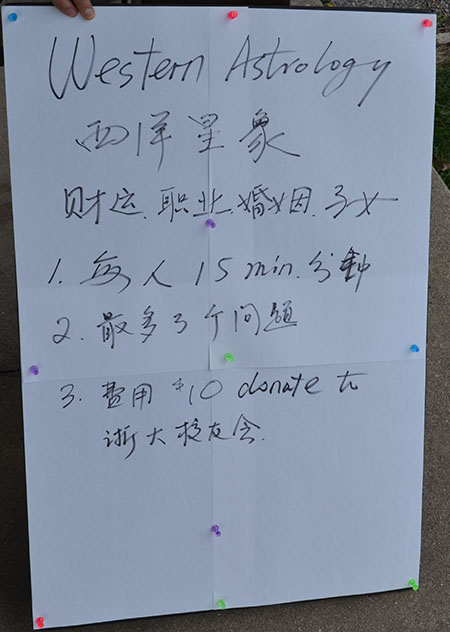 Western Astrology
西洋星象
财运.职业.婚姻.子女
1. 每人 15 min.分钟
2. 最多3个问题
3. 费用 $10 donate to
浙大校友会.